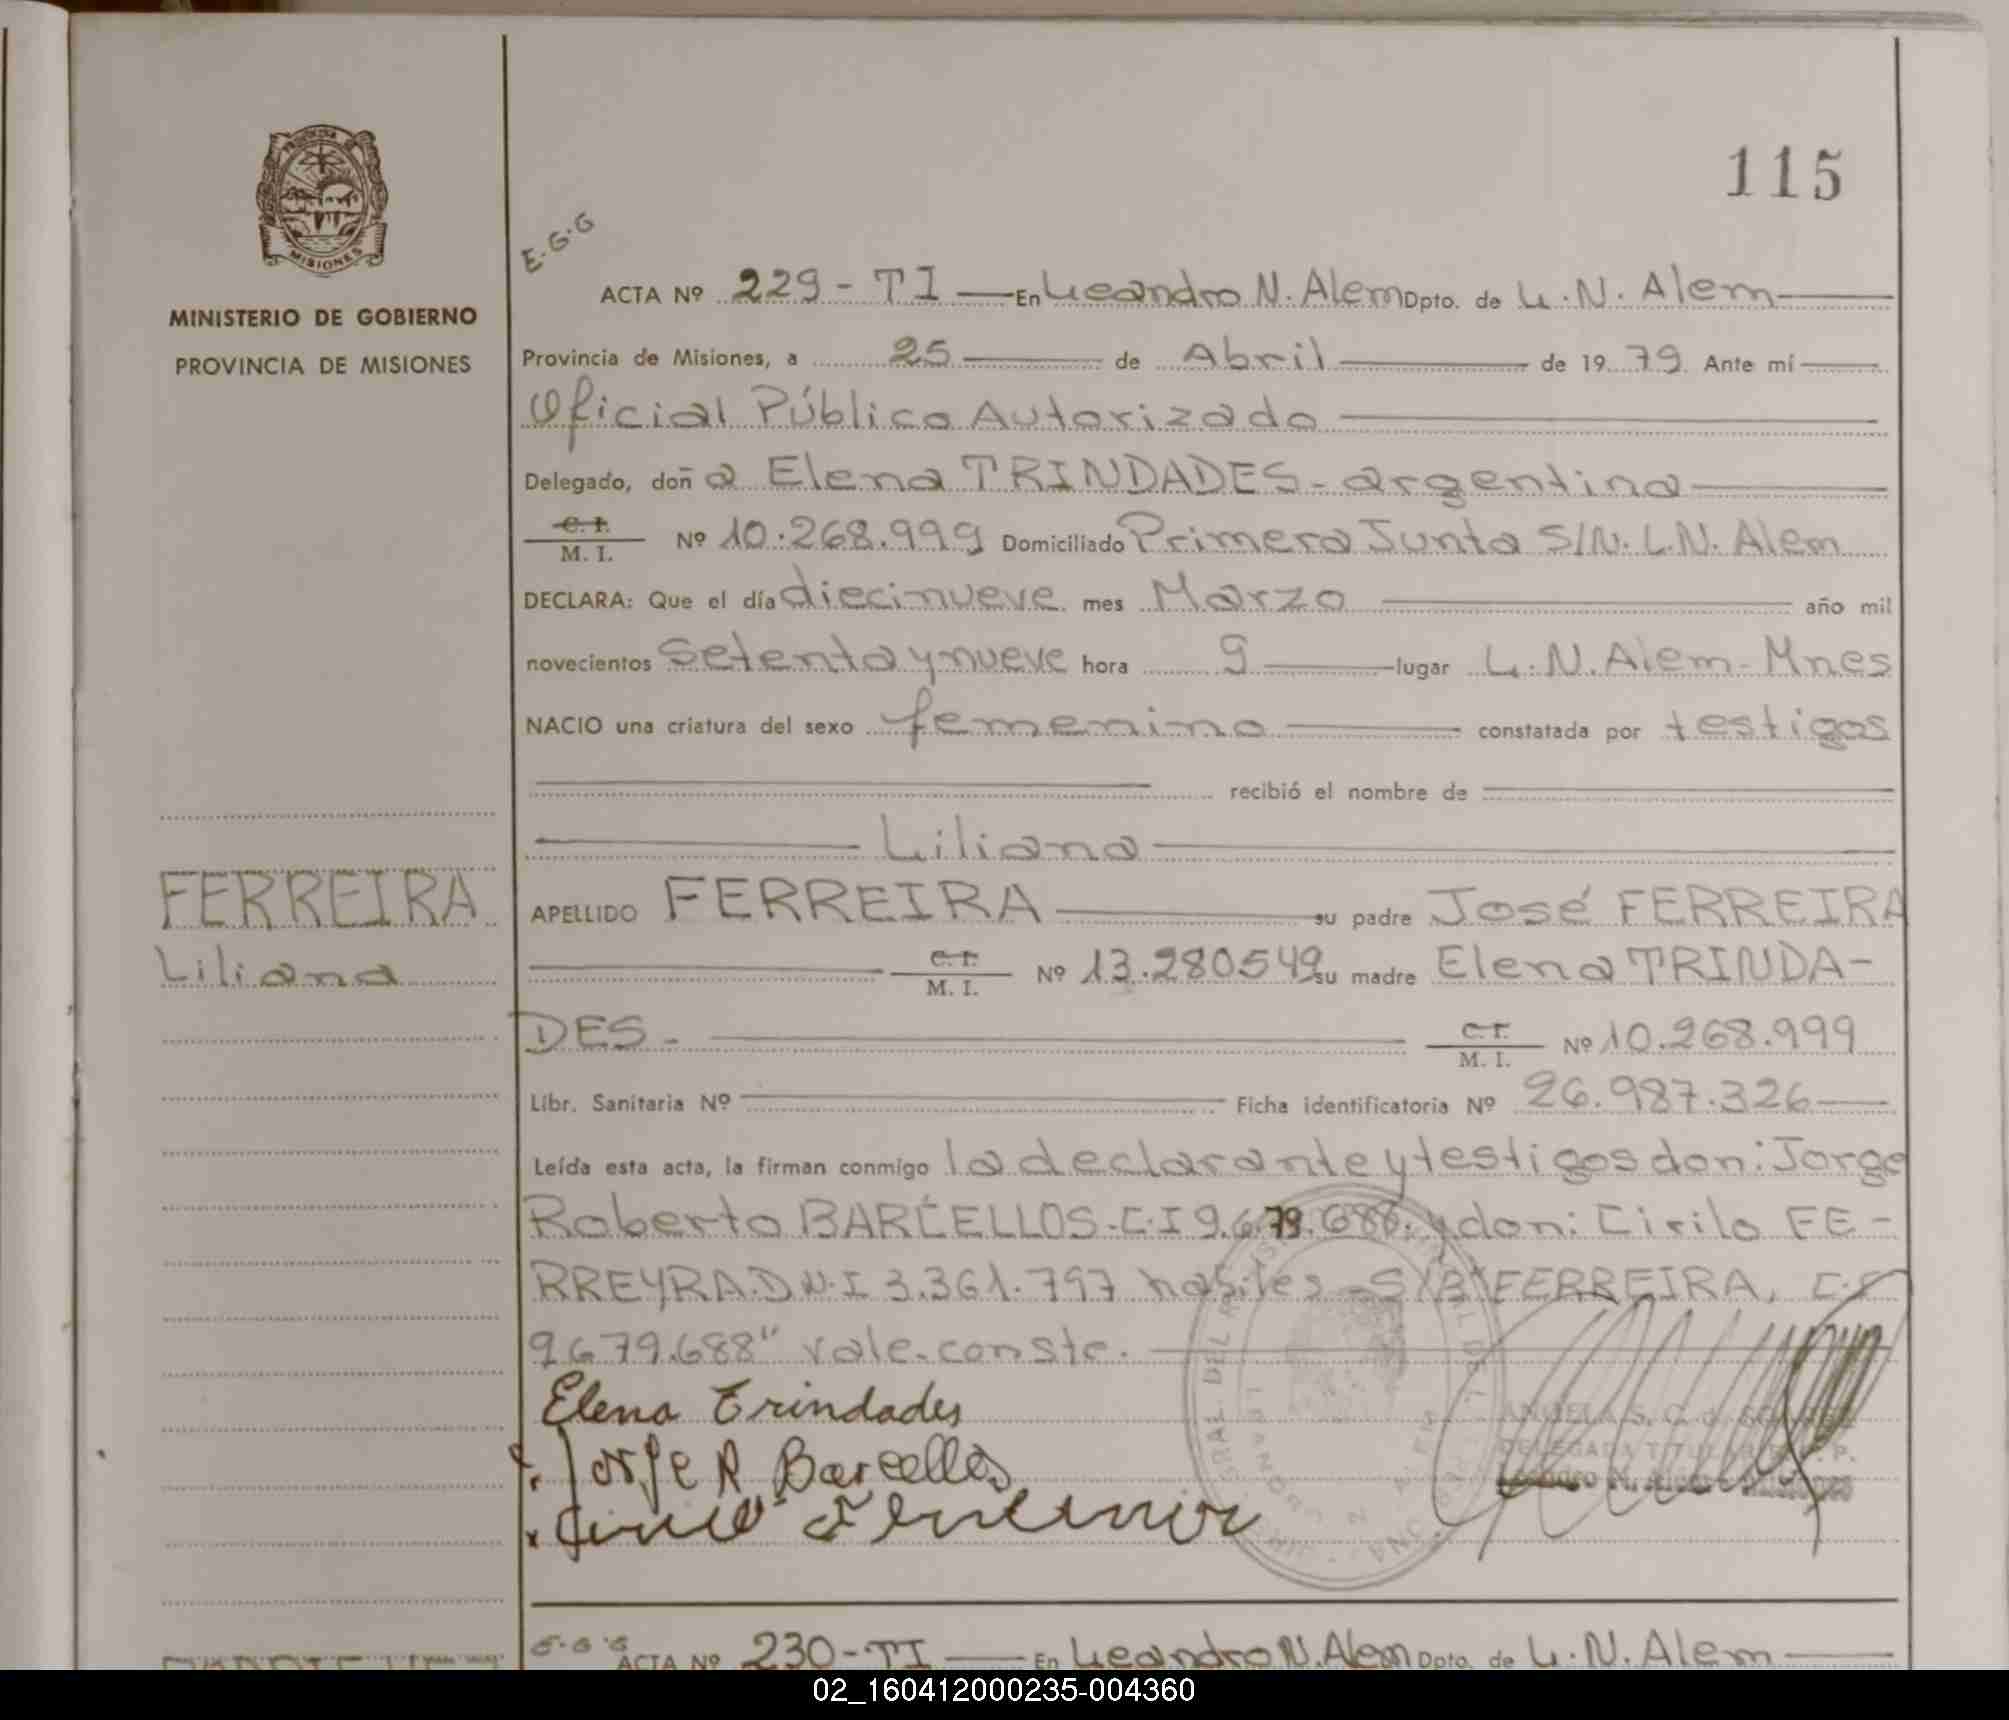 115
MISIONES
MINISTERIO DE GOBIERNO
PROVINCIA DE MISIONES
E.G.G
ACTA Nº 229 - TI — En Leandro N. Alem Dpto. de L. N. Alem
Provincia de Misiones, a 25 de Abril de 19 79 Ante mí
Oficial Público Autorizado
Delegado, doñ a Elena TRINDADES - argentina
C. I. / M. I. Nº 10.268.999 Domiciliado Primera Junta S/N. L.N. Alem
DECLARA: Que el día diecinueve mes Marzo año mil
novecientos setenta y nueve hora 9 lugar L. N. Alem - Mnes
NACIO una criatura del sexo femenino constatada por testigos
recibió el nombre de
Liliana
FERREIRA
Liliana
APELLIDO FERREIRA su padre José FERREIRA
C. I. / M. I. Nº 13.280549 su madre Elena TRINDA-
DES - C. I. / M. I. Nº 10.268.999
Libr. Sanitaria Nº Ficha identificatoria Nº 26.987.326
Leída esta acta, la firman conmigo la declarante y testigos don: Jorge
Roberto BARCELLOS - C.I 9.679.688. y don: Cirilo FE-
RREYRA. D.N.I 3.361.797 habiles - S/B "FERREIRA, C.I
9679.688" vale. conste.
Elena Trindades
Jorge R Barcellos
ANGELA S. C. d.
DELEGADA TITULAR
Leandro N. Alem
E.G.G
ACTA Nº 230 - TI — En Leandro N. Alem Dpto. de L. N. Alem
02_160412000235-004360